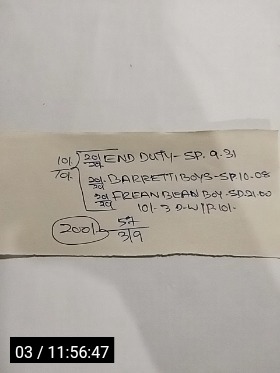 10/- 20/- END DUTY - SP. 9.31
70/- 20/- BARRETTIBOYS - SP 10.08
20/- FREAN BEAN BOY - SP. 21.00
10/- 3 D-W/P. 10/-
200/- 57
319
03 / 11:56:47